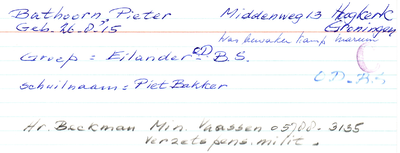 Bathoorn, Pieter Middenweg 13 Hogkerk
Geb. 26.8.'15 Groningen
Was bewaker kamp Marum
Groep = Eilander O.D. - B.S.
O.D. - B.S.
schuilnaam = Piet Bakker
Hr. Beekman Min. Vaassen 05700 - 3155
Verzetspens. milit.